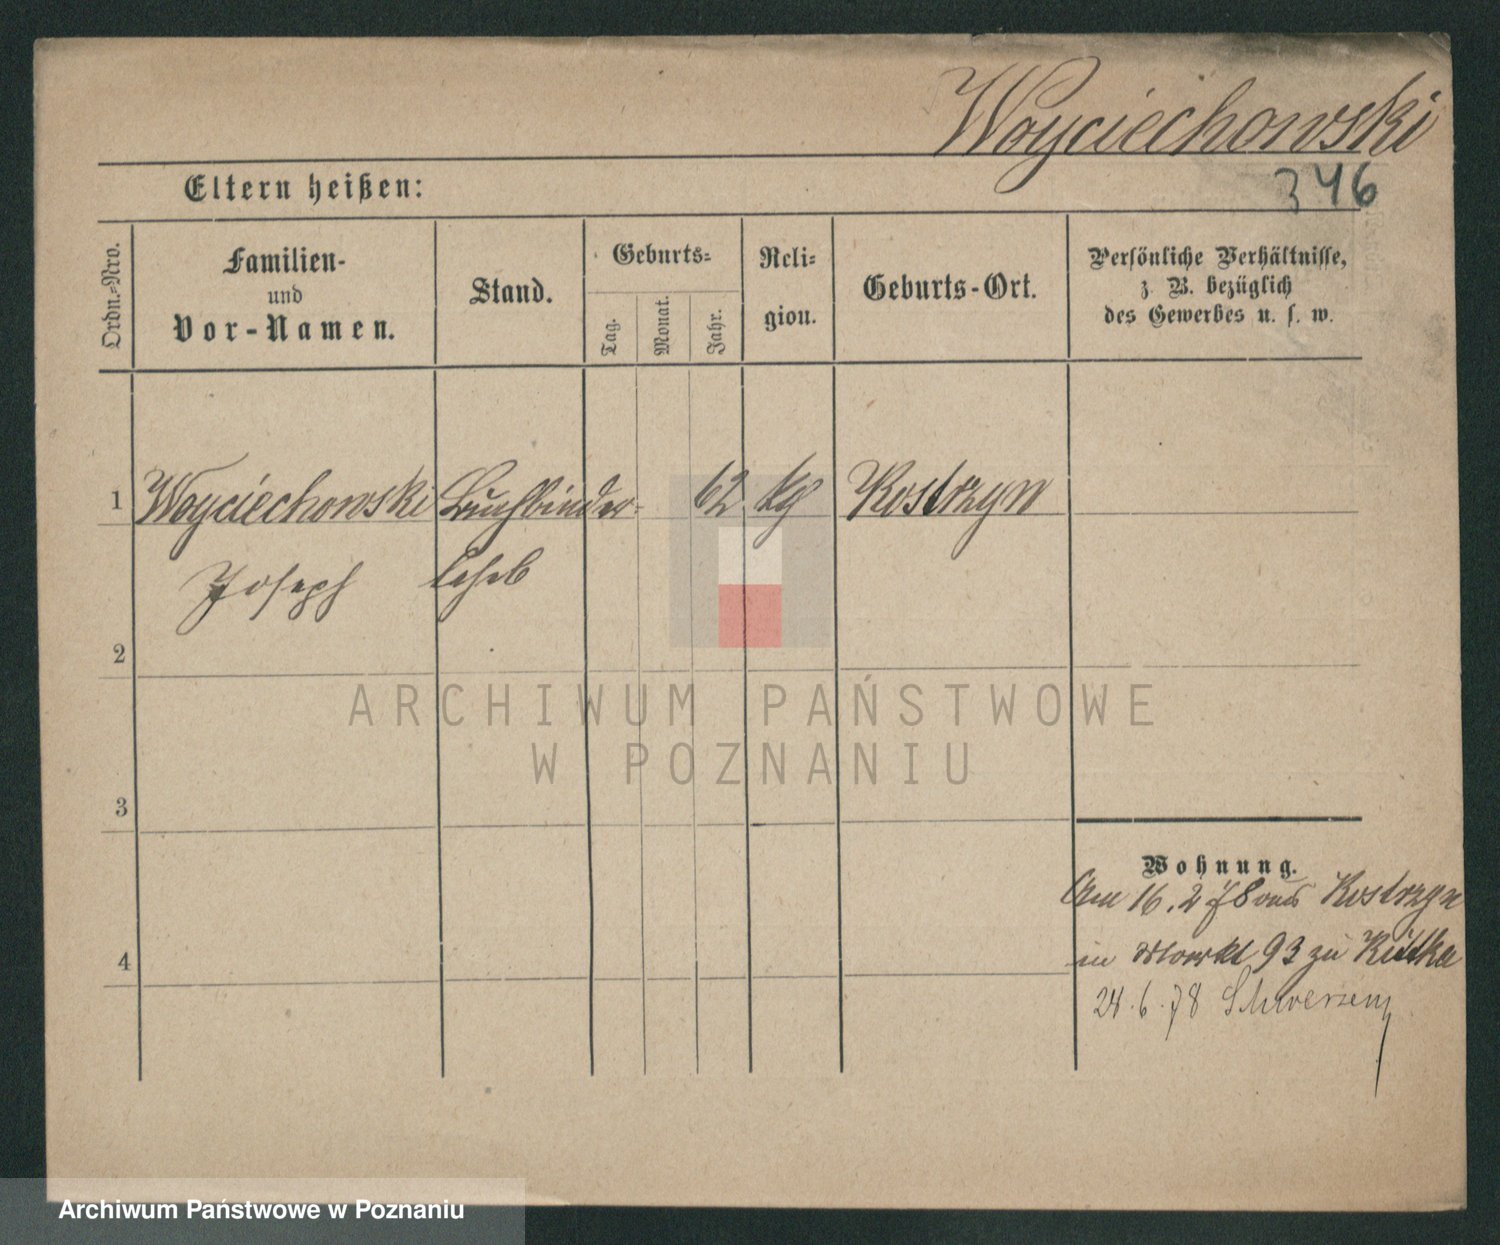 Woyciechowski
346
Eltern heißen:
Ordn.=Nro.
Familien-
und
Vor-Namen.
Stand.
Geburts=
Tag.
Monat.
Jahr.
Reli=
gion.
Geburts-Ort.
Persönliche Verhältnisse,
z. B. bezüglich
des Gewerbes u. s. w.
1
Woyciechowski
Buchbinder=
62
kg
Kostrzyn
Joseph
2
ARCHIWUM PAŃSTWOWE
W POZNANIU
3
Wohnung.
Am 16.2 78 aus Kostrzyn
4
in Markt 93 zu
24.6.78 Schwersenz
Archiwum Państwowe w Poznaniu